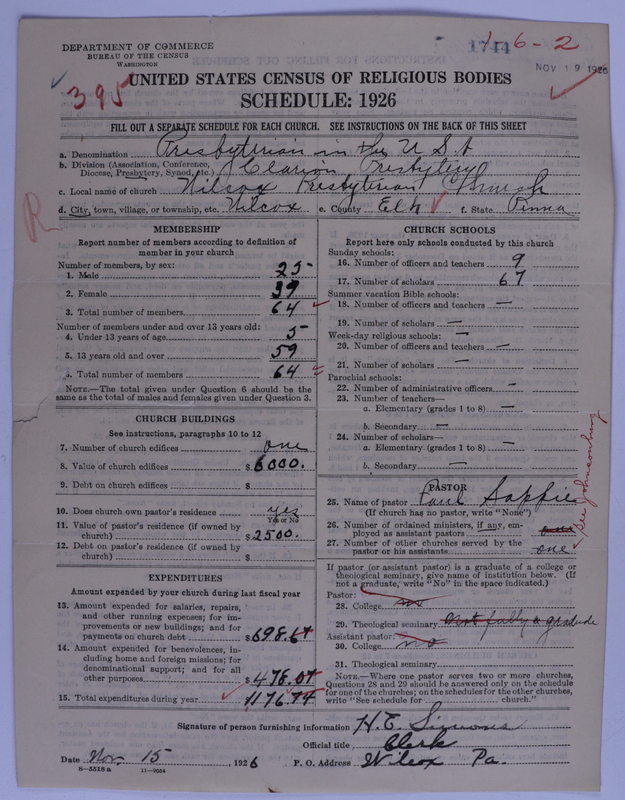 DEPARTMENT OF COMMERCE
BUREAU OF THE CENSUS
WASHINGTON
1744
1-6-2
NOV 19 1926
395
UNITED STATES CENSUS OF RELIGIOUS BODIES
SCHEDULE: 1926
FILL OUT A SEPARATE SCHEDULE FOR EACH CHURCH. SEE INSTRUCTIONS ON THE BACK OF THIS SHEET
a. Denomination Presbyterian in the U S A
b. Division (Association, Conference, Diocese, Presbytery, Synod, etc.) Clarion Presbytery
c. Local name of church Wilcox Presbyterian Church
d. City, town, village, or township, etc. Wilcox e. County Elk f. State Penna
R
MEMBERSHIP
Report number of members according to definition of
member in your church
Number of members, by sex:
1. Male 25
2. Female 39
3. Total number of members 64
Number of members under and over 13 years old:
4. Under 13 years of age 5
5. 13 years old and over 59
6. Total number of members 64
NOTE.—The total given under Question 6 should be the
same as the total of males and females given under Question 3.
CHURCH BUILDINGS
See instructions, paragraphs 10 to 12
7. Number of church edifices one
8. Value of church edifices $ 6000.
9. Debt on church edifices $
10. Does church own pastor's residence yes
Yes or No
11. Value of pastor's residence (if owned by
church) $ 2500.
12. Debt on pastor's residence (if owned by
church) $
EXPENDITURES
Amount expended by your church during last fiscal year
13. Amount expended for salaries, repairs,
and other running expenses; for im-
provements or new buildings; and for
payments on church debt $ 698.67
14. Amount expended for benevolences, in-
cluding home and foreign missions; for
denominational support; and for all
other purposes $ 478.07
15. Total expenditures during year 1176.74
CHURCH SCHOOLS
Report here only schools conducted by this church
Sunday schools:
16. Number of officers and teachers 9
17. Number of scholars 67
Summer vacation Bible schools:
18. Number of officers and teachers —
19. Number of scholars —
Week-day religious schools: —
20. Number of officers and teachers —
21. Number of scholars —
Parochial schools:
22. Number of administrative officers —
23. Number of teachers—
a. Elementary (grades 1 to 8) —
b. Secondary —
24. Number of scholars—
a. Elementary (grades 1 to 8) —
b. Secondary —
PASTOR
25. Name of pastor Paul Sappie
(If church has no pastor, write "None")
26. Number of ordained ministers, if any, em-
ployed as assistant pastors
27. Number of other churches served by the
pastor or his assistants one
See Johnsonburg
If pastor (or assistant pastor) is a graduate of a college or
theological seminary, give name of institution below. (If
not a graduate, write "No" in the space indicated.)
Pastor:
28. College no
29. Theological seminary not fully a graduate
Assistant pastor:
30. College no
31. Theological seminary
NOTE.—Where one pastor serves two or more churches,
Questions 28 and 29 should be answered only on the schedule
for one of the churches; on the schedules for the other churches,
write "See schedule for church."
Signature of person furnishing information H. E. Simons
Official title Clerk
Date Nov. 15, 1926 P. O. Address Wilcox Pa.
8—5518a 11—9054